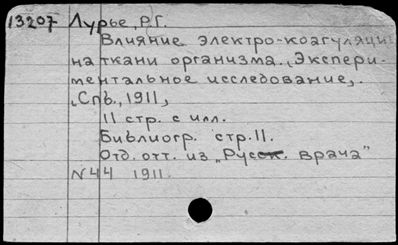 13207 Лурье, Р.Г.
Влияние электро-коагуляции
на ткани организма. Экспери-
ментальное исследование,.
Спб., 1911,
11 стр. с илл.
Библиогр. стр. 11.
Отд. отт. из „Русск. врача"
N 44 1911.